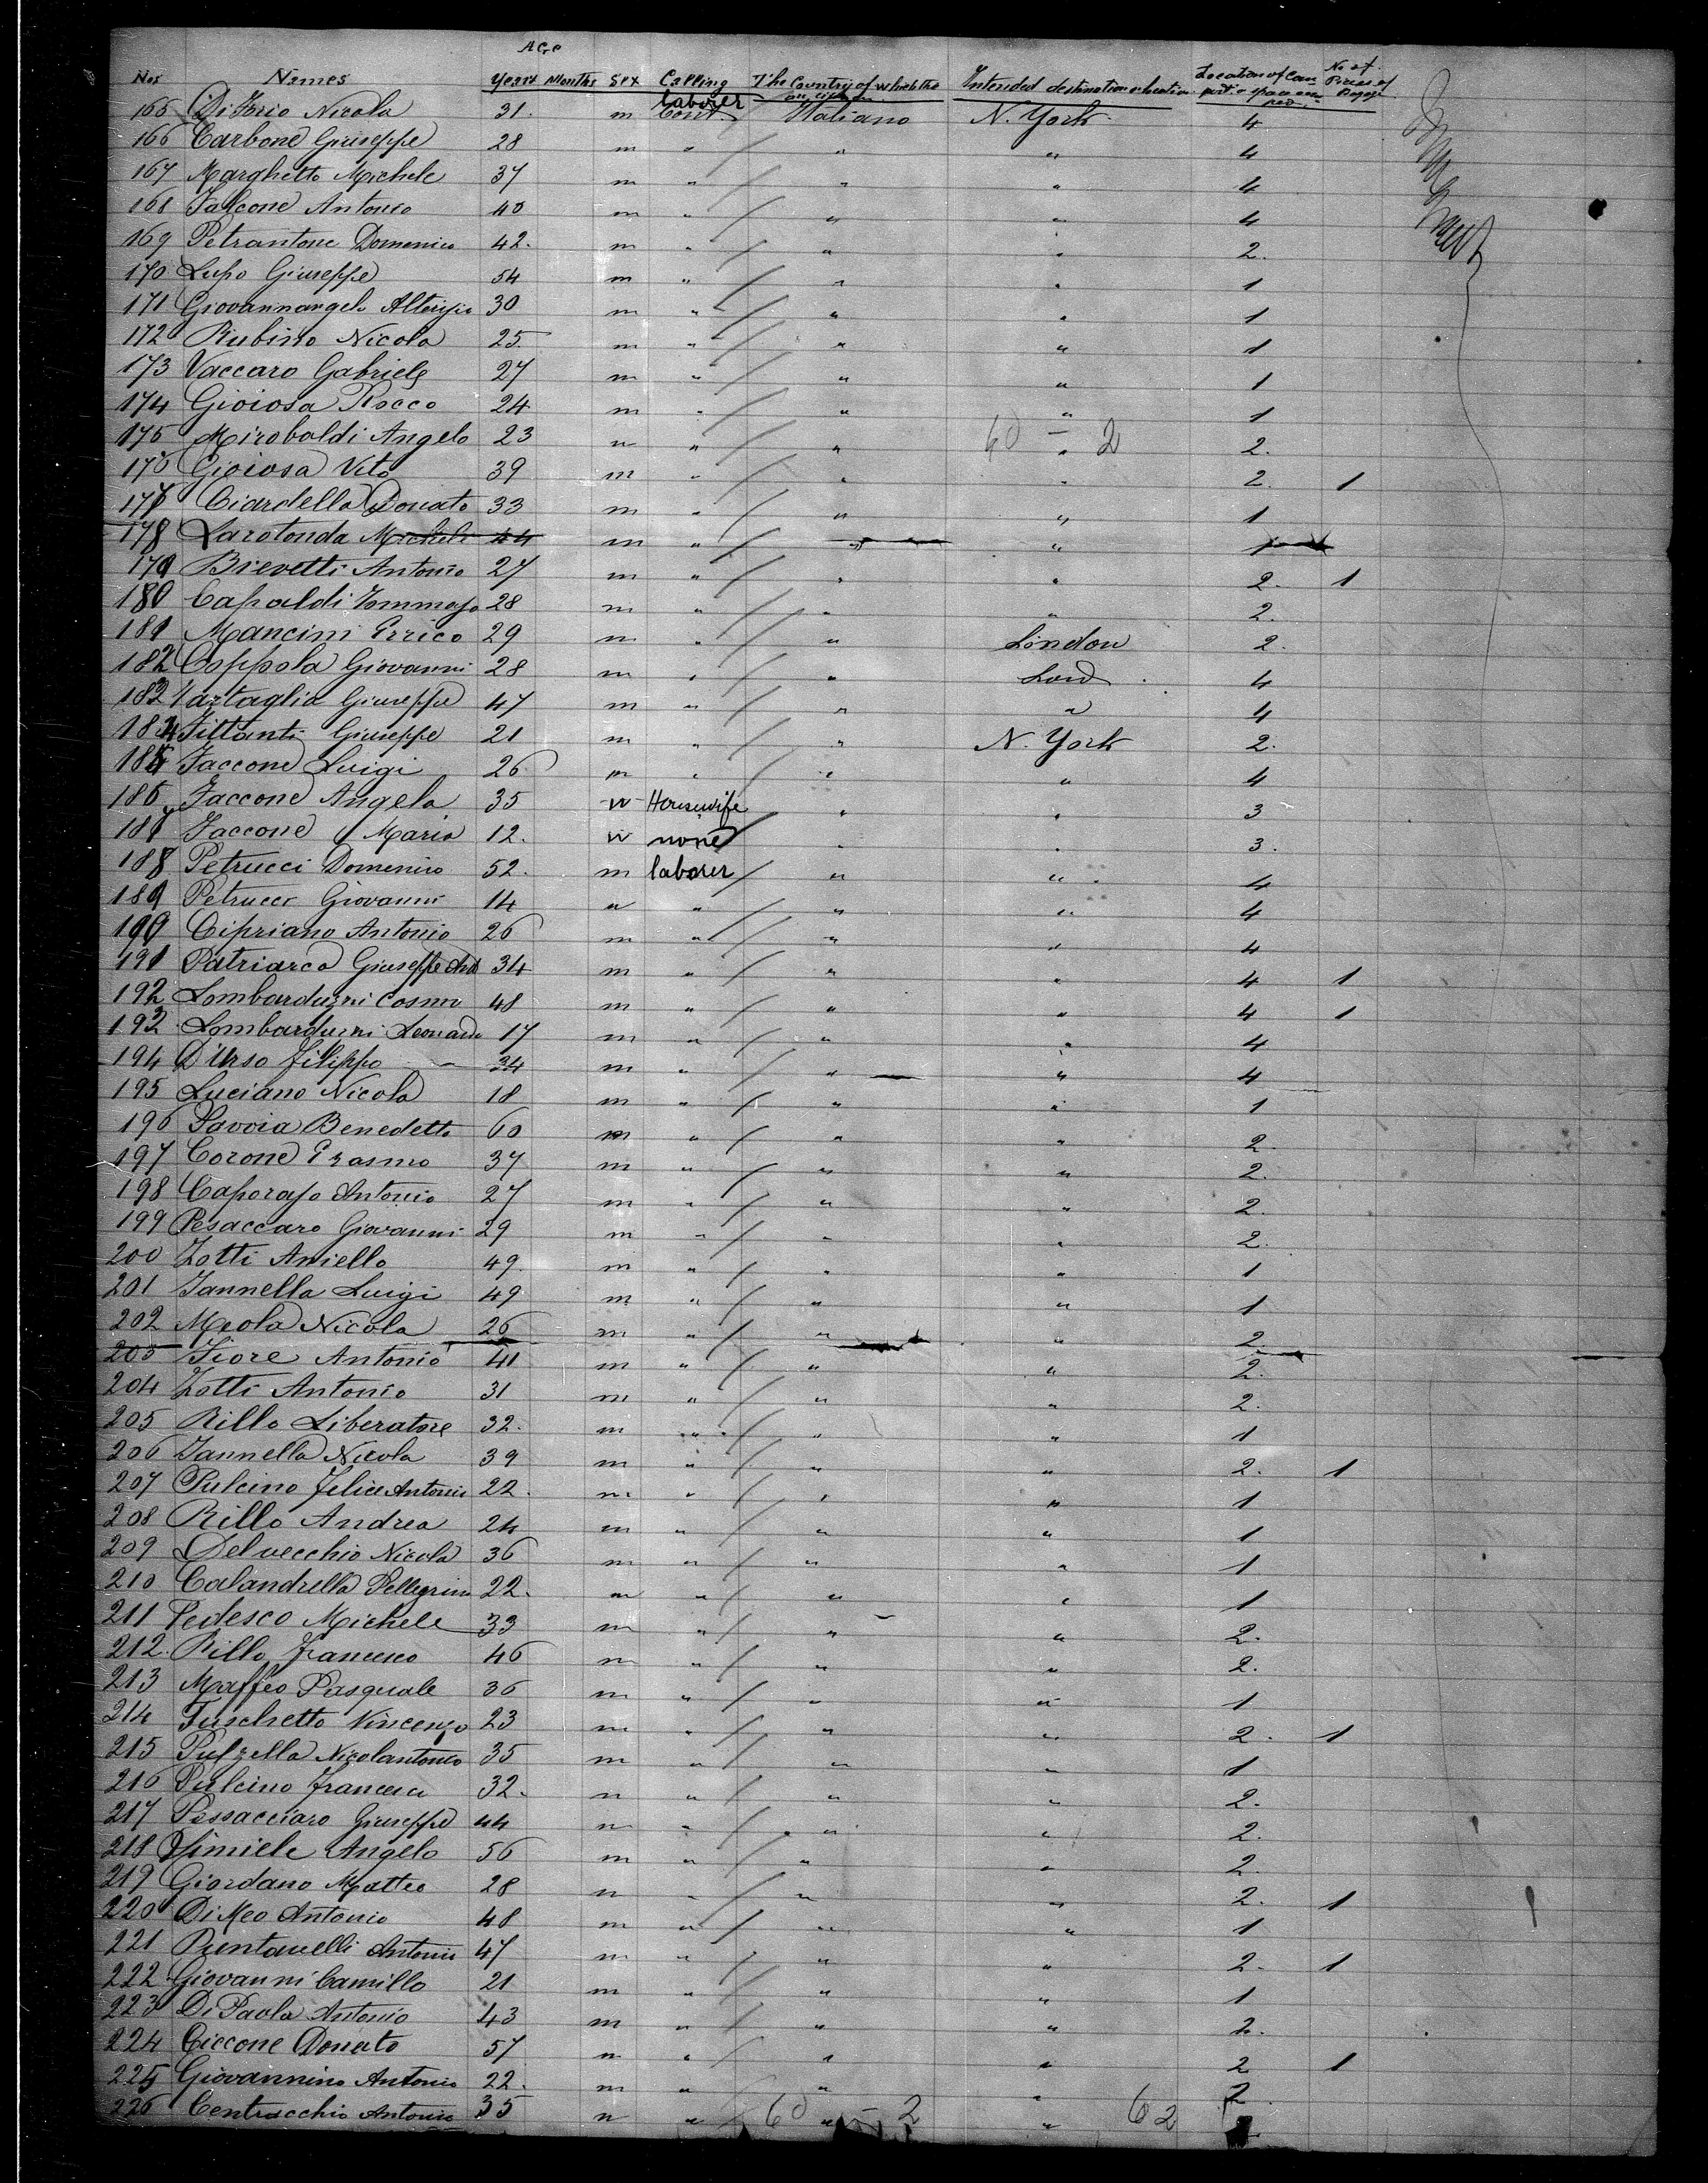 AGe
Nos Names Years Months Sex Calling The Country of which they are citizen Intended destination or location Location of Compart. or space occupied No of Pieces of Bagage
165 Di Iorio Nicola 31. m laborer Cont Italiano N. York 4
166 Carbone Giuseppe 28 m " / " " 4
167 Marghetto Michele 37 m " / " " 4
168 Falcone Antonio 40 m " / " " 4
169 Petrantone Domenico 42. m " / " " 2.
170 Lupo Giuseppe 54 m " / " " 1
171 Giovannangelo 30 m " / " " 1
172 Rubino Nicola 25. m " / " " 1
173 Vaccaro Gabriele 27 m " / " " 1
174 Gioiosa Rocco 24 m " / " " 1
175 Miroboldi Angelo 23 m " / " 60 — 2 " 2.
176 Gioiosa Vito 39 m " / " " 2. 1
177 Ciardella Donato 33 m " / " " 1
178 Larotonda Michele 44 m " / " " 1
179 Brevetti Antonio 27 m " / " " 2. 1
180 Capaldi Tommaso 28 m " / " " 2.
181 Mancini Errico 29 m " / " London 2.
182 Coppola Giovanni 28 m " / " Lond 4
183 Tartaglia Giuseppe 47 m " / " " 4
184 Fittanti Giuseppe 21 m " / " N. York 2.
185 Faccone Luigi 26 m " / " " 4
186 Faccone Angela 35 w Housewife " " 3
187 Faccone Maria 12. w none " " 3.
188 Petrucci Domenico 52. m laborer / " " 4
189 Petrucci Giovanni 14 m " / " " 4
190 Cipriano Antonio 26 m " / " " 4
191 Patriarca Giuseppe Ant 34 m " / " " 4 1
192 Lombarduzzi Cosmo 48 m " / " " 4 1
193 Lombarduzzi Leonardo 17 m " / " " 4
194 D'Urso Filippo 34 m " / " " 4
195 Luciano Nicola 18 m " / " " 1
196 Savoia Benedetto 60 m " / " " 2.
197 Corone Erasmo 37 m " / " " 2.
198 Caporaso Antonio 27 m " / " " 2.
199 Pesaccaro Giovanni 29 m " / " " 2.
200 Zotti Aniello 49. m " / " " 1
201 Iannella Luigi 49 m " / " " 1
202 Meola Nicola 26 m " / " " 2.
203 Fiore Antonio 41 m " / " " 2.
204 Zotti Antonio 31 m " / " " 2.
205 Rillo Liberatore 32. m " / " " 1
206 Iannella Nicola 39 m " / " " 2. 1
207 Pulcino Felice Antonio 22. m " / " " 1
208 Rillo Andrea 24 m " / " " 1
209 Delvecchio Nicola 36 m " / " " 1
210 Calandrella Pellegrino 22. m " / " " 1
211 Tedesco Michele 33 m " / " " 2.
212. Rillo Francesco 46 m " / " " 2.
213 Maffeo Pasquale 36 m " / " " 1
214 Fuschetto Vincenzo 23 m " / " " 2. 1
215 Pulzella Nicolantonio 35 m " / " " 1
216 Pulcino Francesco 32. m " / " " 2.
217 Pessacciaro Giuseppe 44 m " / " " 2.
218 Simiele Angelo 56 m " / " " 2.
219 Giordano Matteo 28 m " / " " 2. 1
220 Di Meo Antonio 48 m " / " " 1
221 Puntavelli Antonio 47 m " / " " 2. 1
222 Giovanni Camillo 21 m " / " " 1
223 Di Paola Antonio 43 m " / " " 2.
224 Ciccone Donato 57 m " / " " 2 1
225 Giovannino Antonio 22. m " / " " 2
226 Centracchio Antonio 35 m " / 60 " — 2 " 62